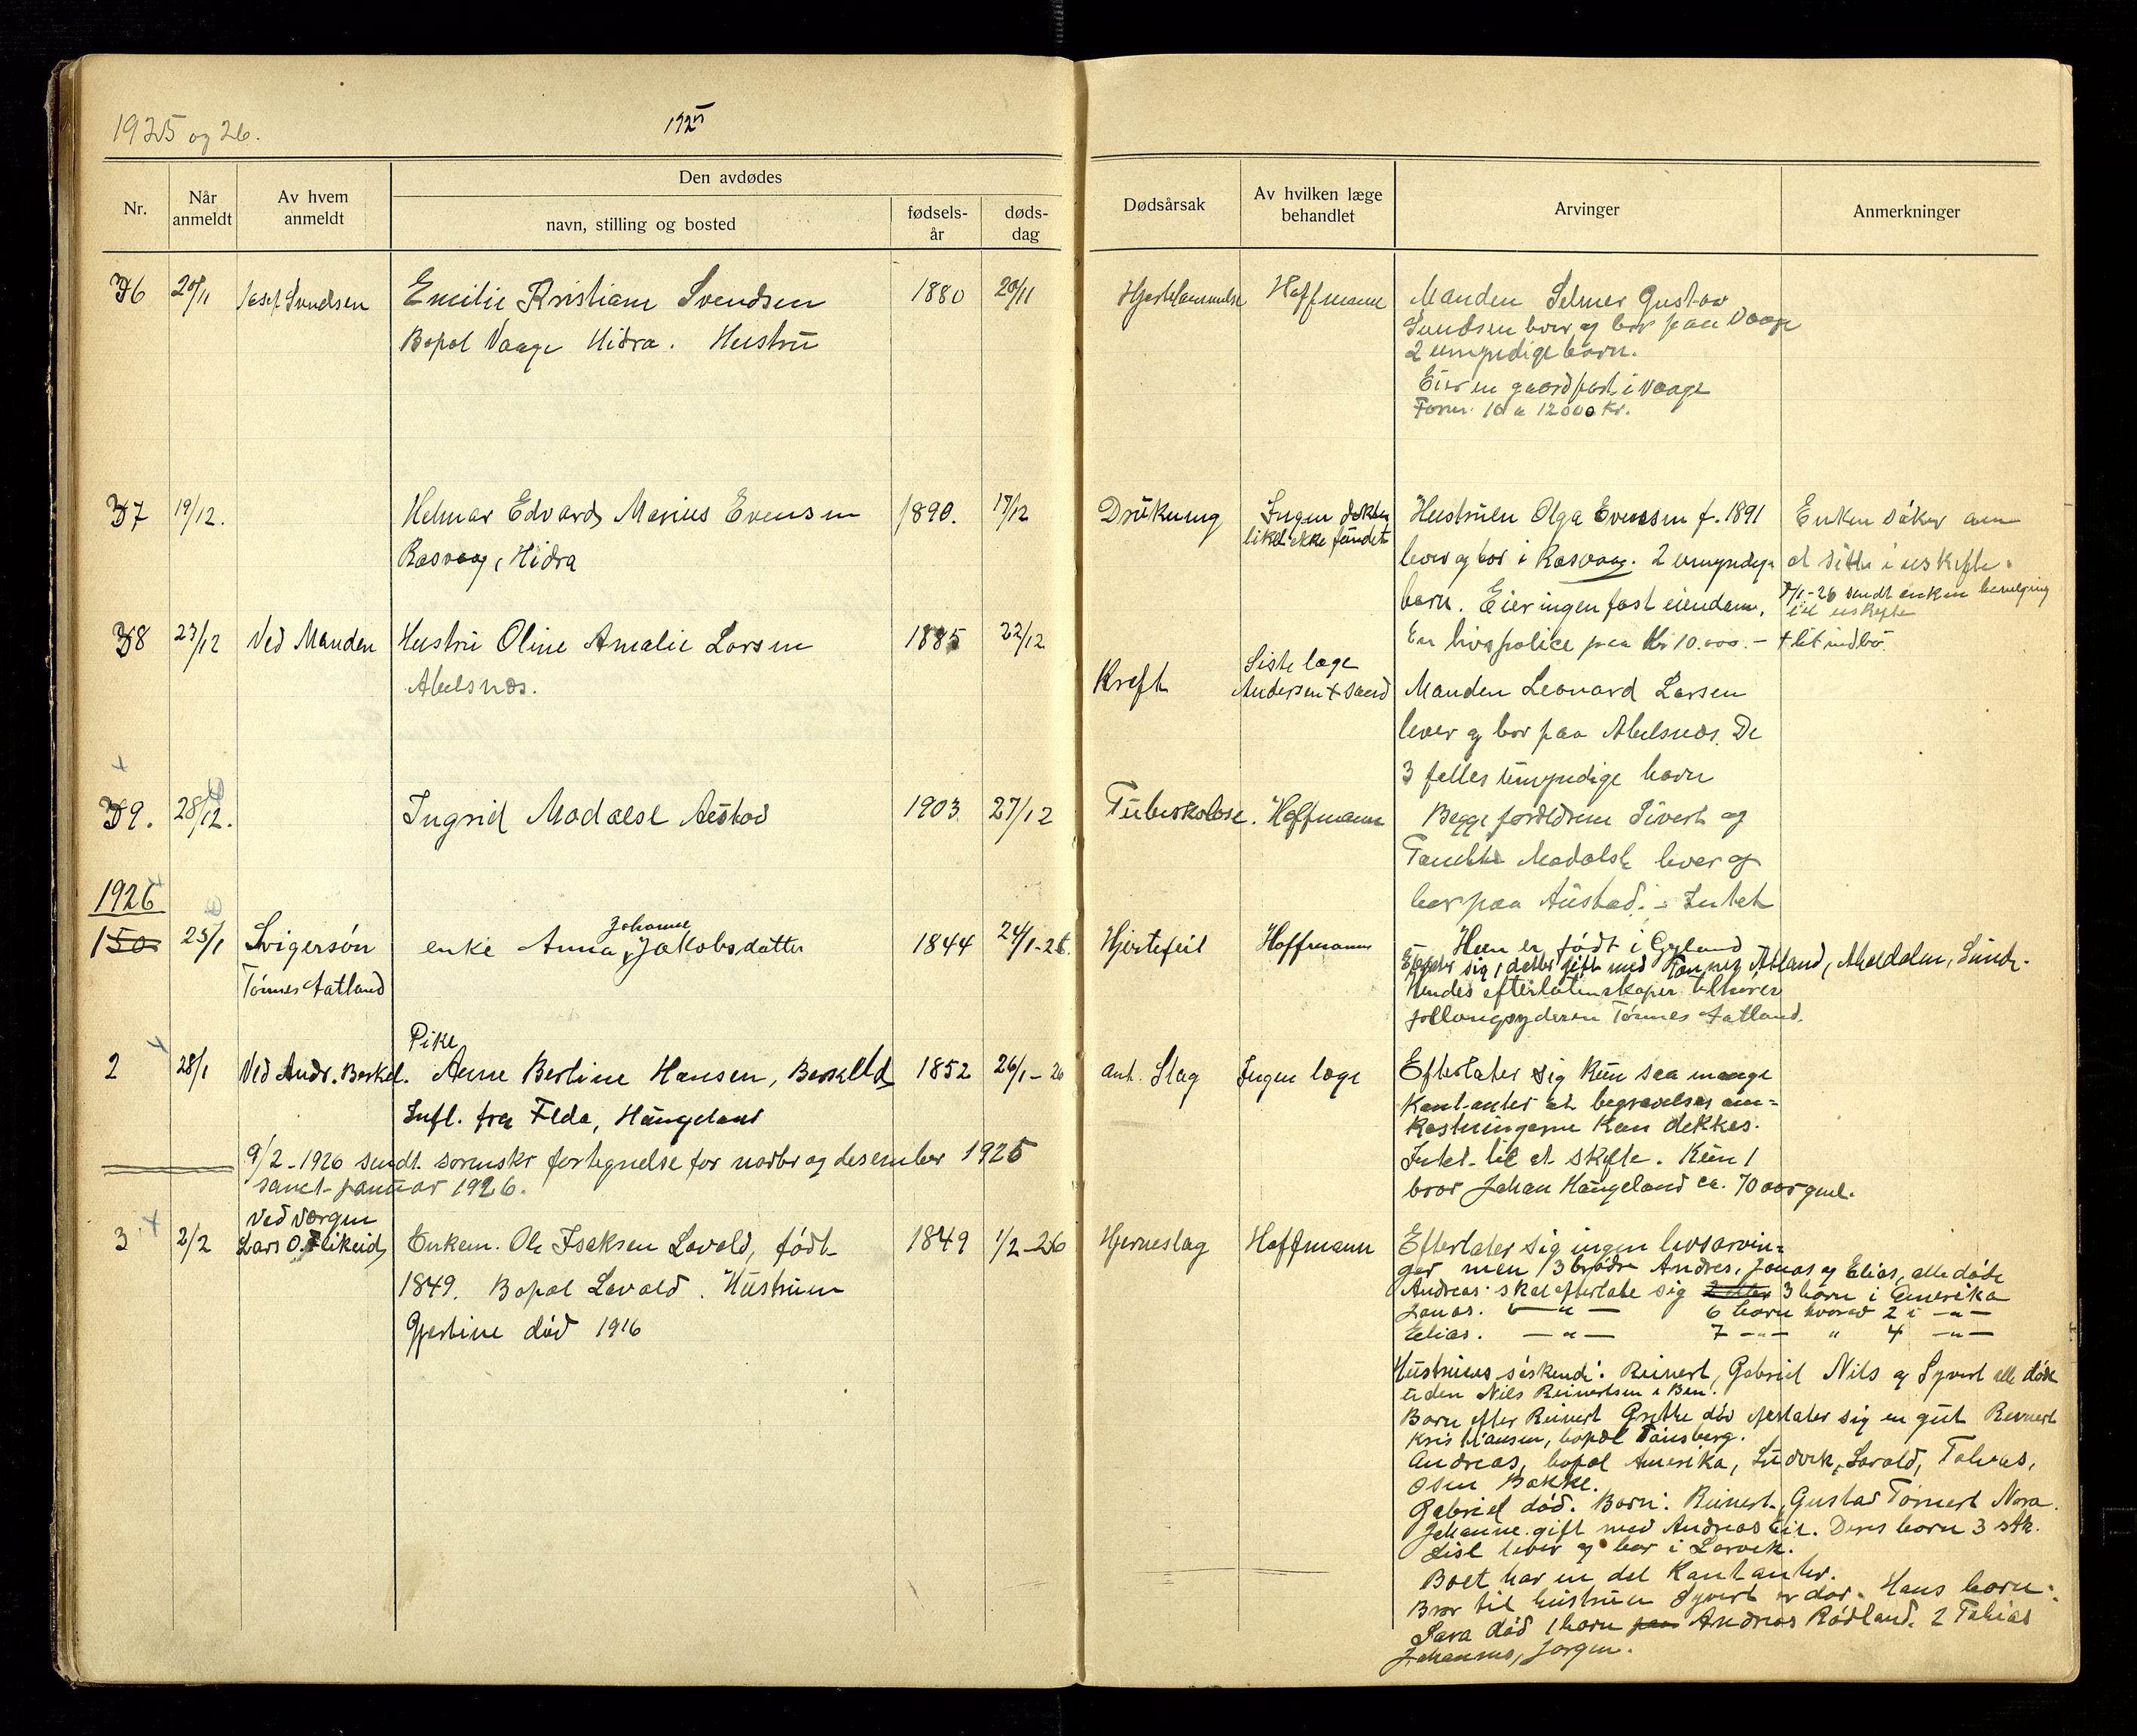 1925 og 26.
1925
Nr.
Når anmeldt
Av hvem anmeldt
Den avdødes
navn, stilling og bosted
fødsels-år
døds-dag
Dødsårsak
Av hvilken læge behandlet
Arvinger
Anmerkninger
36 20/11 Josef Svendsen Emilie Kristiane Svendsen 1880 20/11 Hjertelammelse Hoffmann Manden Selmer Gustav
Bopæl Vaage Hidra. Hustru
Svendsen lever og bor paa Vaage
2 umyndige barn.
Eier en gaardpart i Vaage
Form. 10 a 12000 kr.
37 19/12. Helmar Edvard Marius Evensen 1890. 17/12 Drukning Ingen doktor Hustruen Olga Evensen f. 1891 Enken søker om
Rasvaag, Hidra liket ikke fundet lever og bor i Rasvaag. 2 umyndige at sitte i uskifte.
barn. Eier ingen fast eiendom. 7/1-26 sendt enken bevilgning
til uskifte
En livspolice paa kr 10.000.- + litt indbo.
38 23/12 Ved Manden Hustru Oline Amalie Larsen 1885 22/12
Abelsnes. Kreft Siste læge
Andersen + Sand Manden Leonard Larsen
lever og bor paa Abelsnes. De
3 felles umyndige barn
39. 28/12. Ingrid Modalsl Austad 1903 27/12 Tuberkolose. Hoffmann Begge foreldrene Sivert og
Modalsli lever og
bor paa Austad. - Intet
1926
1 50 25/1 Svigersøn enke Anna Johanne Jakobsdatter 1844 24/1-26. Hjertefeil Hoffmann Hun er født i Gyland
Tønnes Aatland
Efterlater sig 1 datter gift med Tønnes Åtland, Aamdalen, Lunde.
Hendes efterlatenskaper tilhører
follaugsyderen Tønnes Aatland.
Pike
2 28/1 Ved Andr. Berkel. Anne Bertine Hansen, Berkeld 1852 26/1-26 ant. Slag Ingen læge Efterlater sig kun saa mange
Infl. fra Feda, Haugeland
kontanter at begravelses om-
kostningerne kan dekkes.
Intet til at skifte. Kun 1
bror Johan Haugeland ca. 70 aar gml.
9/2-1926 sendt sorenskr fortegnelse for novbr og desember 1925
samt januar 1926.
Ved værgen
3 2/2 Lars O. Fleikeid, Enkem. Ole Isaksen Lavold, født 1849 1/2-26 Hjerneslag Hoffmann Efterlater sig ingen livsarvin-
1849. Bopæl Lavold. Hustruen
Gjertine død 1916
ger men 3 brødre Andreas, Jonas og Elias, alle døde
Andreas skal efterlate sig 3 barn i Amerika
Jonas. — " — 6 barn hvorav 2 i — " —
Elias. — " — 7 — " — " 4 — " —
Hustruens søskende: Reinert, Gabriel Nils og Syvert alle døde
uden Nils Reinertsen i Ben.
Barn efter Reinert Grethe død efterlater sig en gut Reinert
Kristiansen, bopæl Tønsberg.
Andreas, bopæl Amerika, Ludvik, Lavold, Tobias,
Osen Bakke.
Gabriel død. Barn: Reinert, Gustav Tørnert Nora.
Johanne gift med Andreas Eie. Deres barn 3 stk.
Lise lever og bor i Larvik.
Boet har en del kontanter.
Bror til hustruen Syvert er død. Hans barn:
Sara død 1 barn Andreas Rødland. 2 Tobias
Johannes, Jørgen.